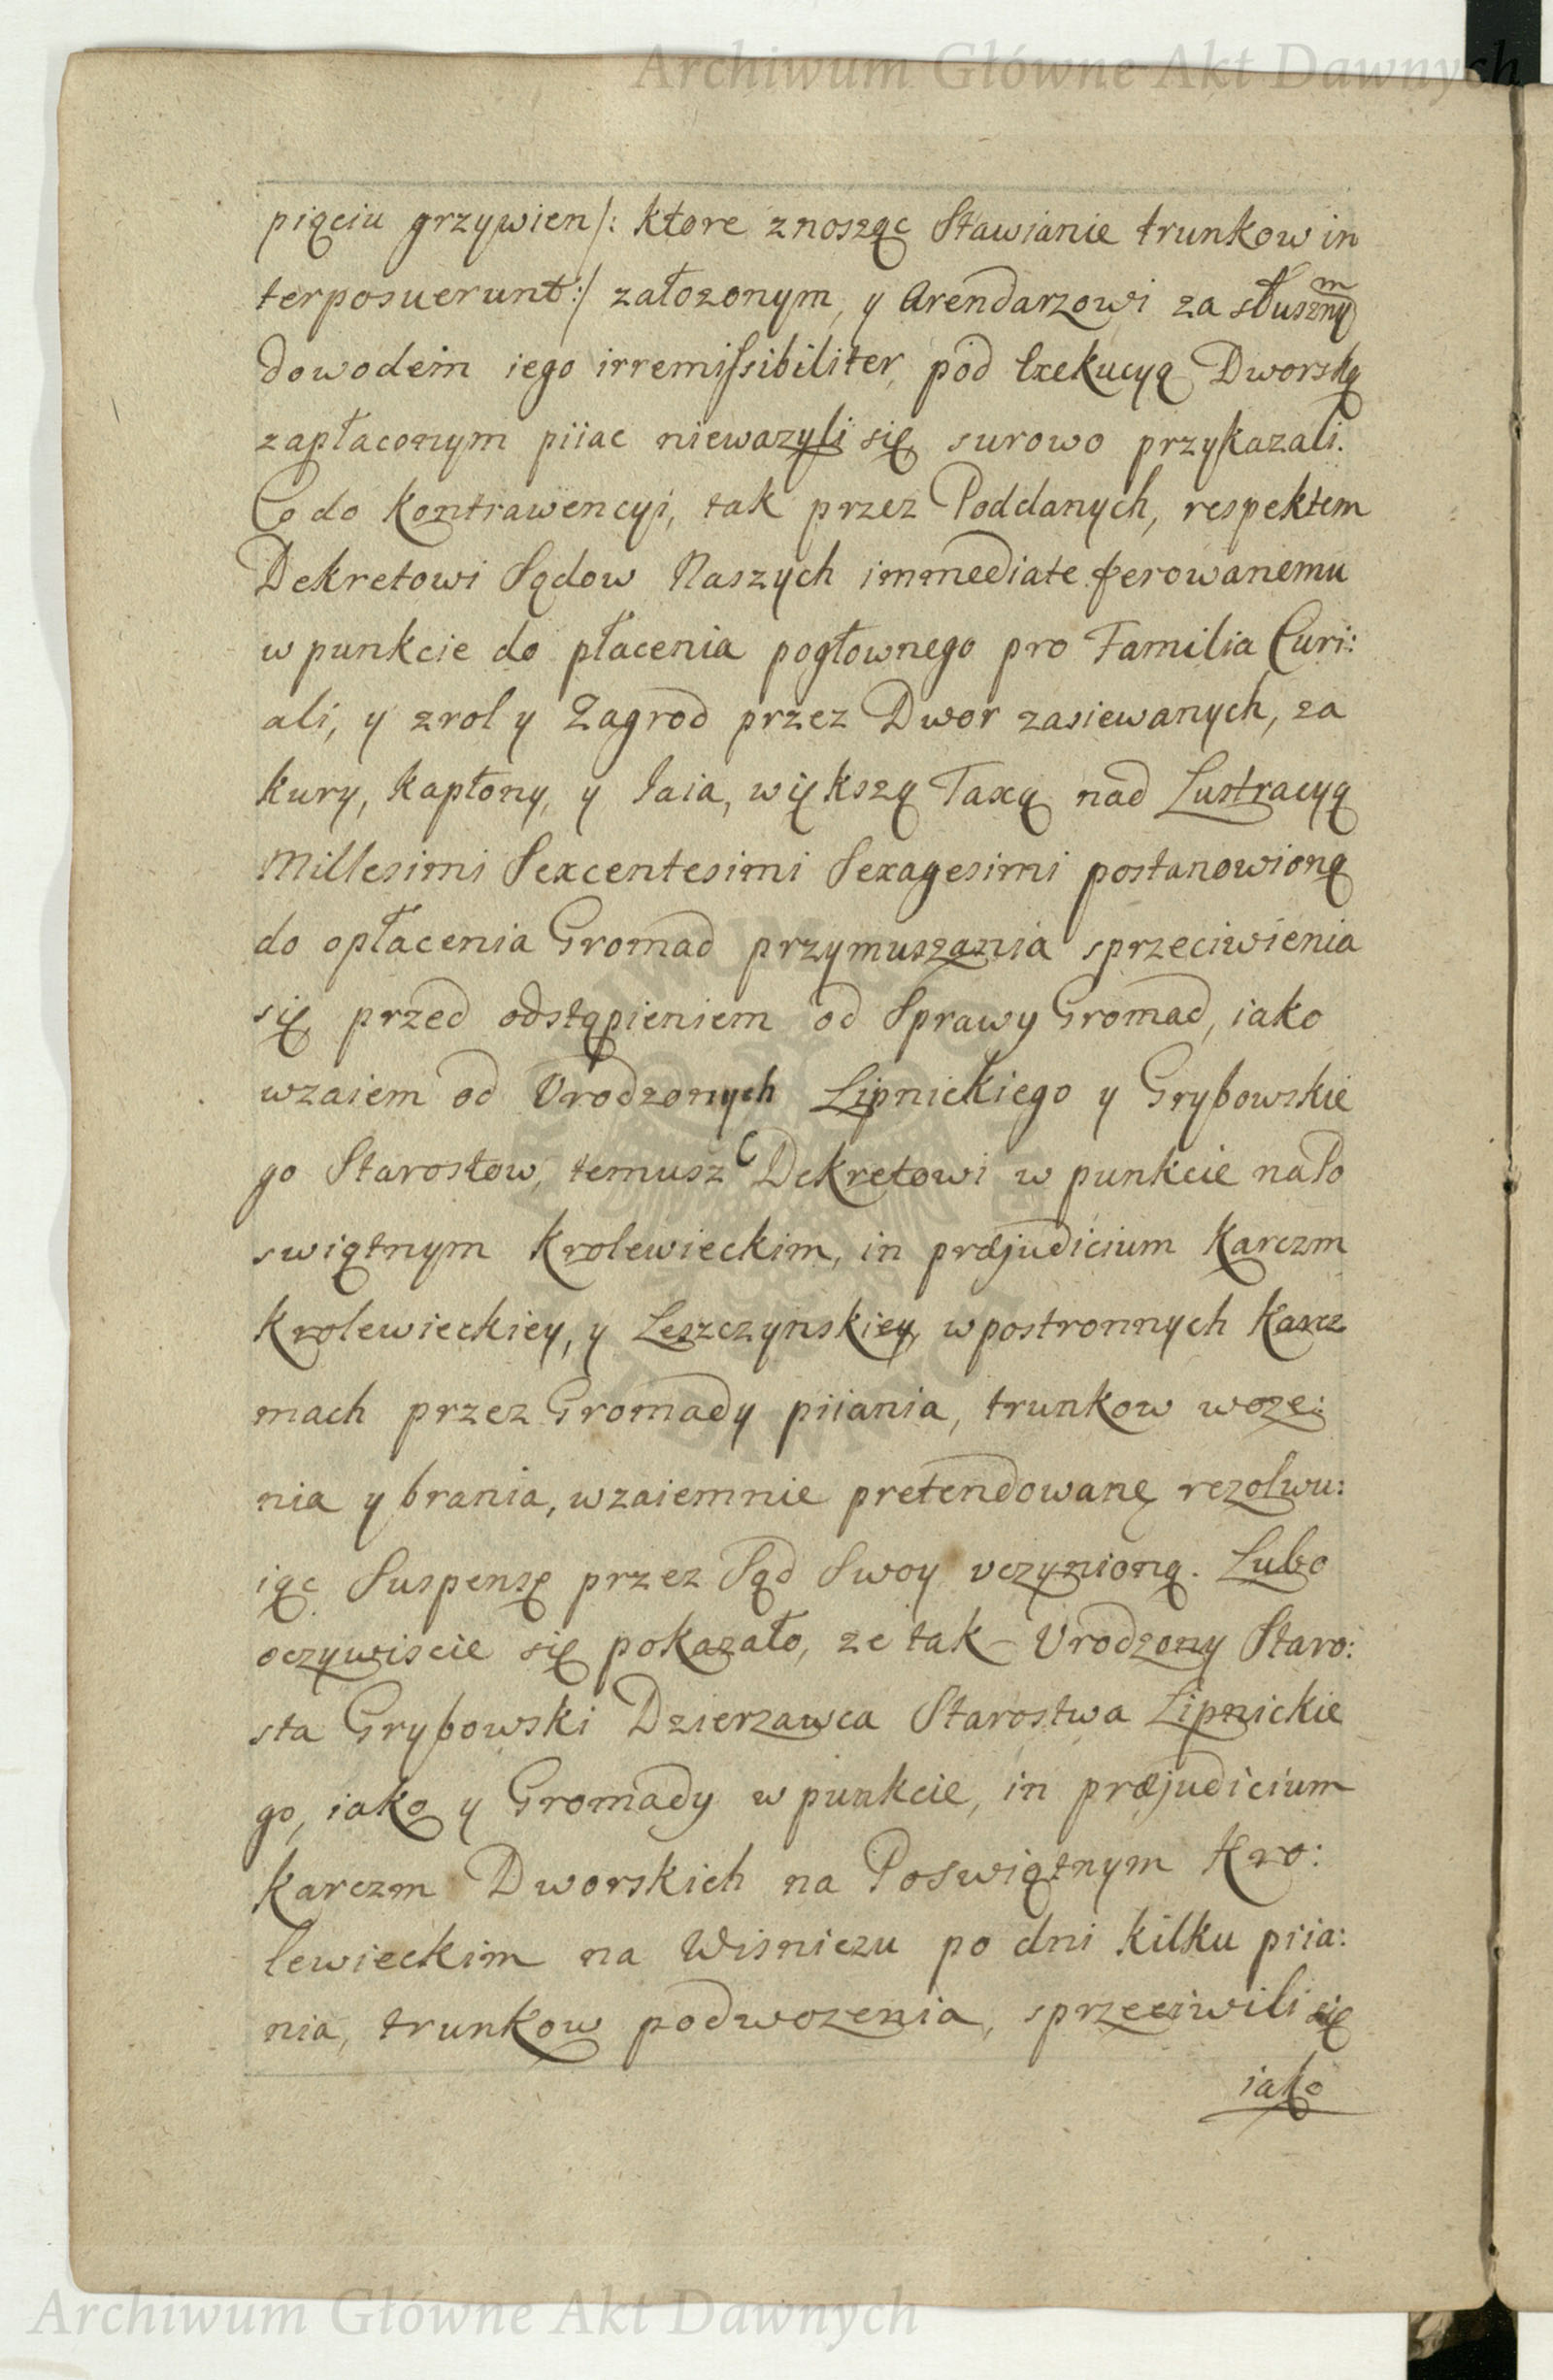 Archiwum Główne Akt Dawnych
pięciu grzywien /: ktore znosząc Stawianie trunkow in
terposuerunt :/ załozonym, y Arendarzowi za słusznym
dowodem iego irremissibiliter, pod Exekucyą Dworską
zapłaconym piiac niewazyli się surowo przykazali.
Co do Kontrawencyi, tak przez Poddanych, respektem
Dekretowi Sądow Naszych immediate ferowanemu
w punkcie do płacenia pogłownego pro Familia Curi:
ali, y zrol y Zagrod przez Dwor zasiewanych, za
kury, kapłony, y Iaia, większą Taxą nad Lustracyą
Millesimi Sexcentesimi Sexagesimi postanowioną
do opłacenia Gromad przymuszania sprzeciwienia
się przed odstąpieniem od Sprawy Gromad, iako
wzaiem od Urodzonych Lipnickiego y Grybowskie
go Starostow, temusz Dekretowi w punkcie na Po
swiątnym Krolewieckim, in præjudicium Karczm
Krolewieckiey, y Leszczynskiey, w postronnych Karcz
mach przez Gromady piiania, trunkow woze:
nia y brania, wzaiemnie pretendowanę rezolwu:
iąc Suspensę przez Sąd Swoy uczynioną. Lubo
oczywiscie się pokazało, ze tak Urodzony Staro:
sta Grybowski Dzierzawca Starostwa Lipnickie
go, iako y Gromady w punkcie, in præjudicium
Karczm Dworskich na Poswiątnym Kro:
lewieckim na Wisniczu po dni kilku piia:
nia, trunkow podwozenia, sprzeciwili się
iako
Archiwum Główne Akt Dawnych